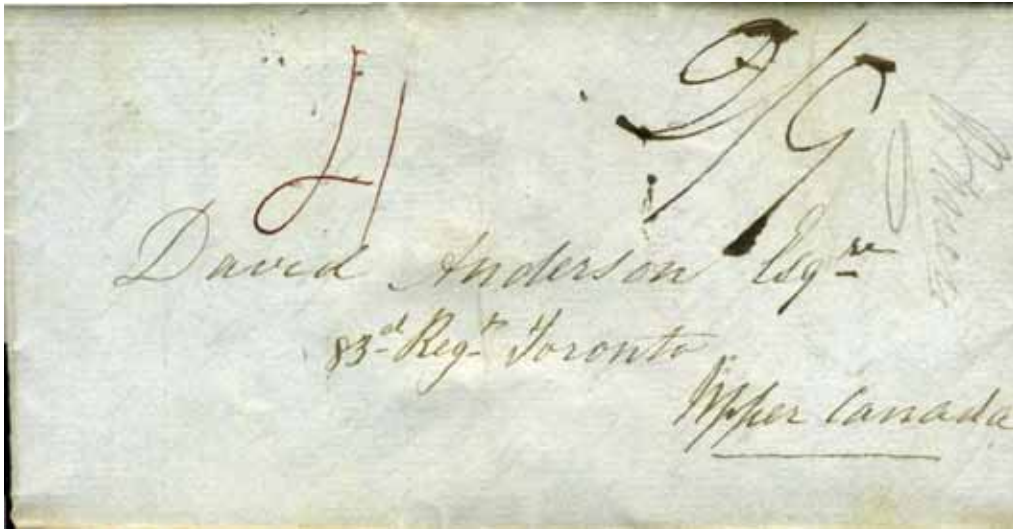 4 2/9
David Anderson Esqre
83d Regt Toronto
Upper Canada